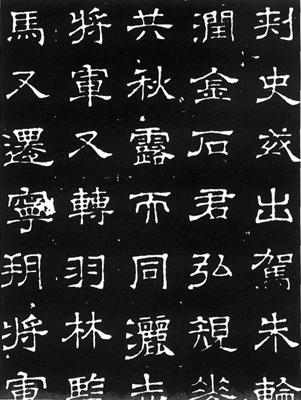 刺史茲出駕朱輪
潤金石君弘規
共秋露而同灑
將軍又轉羽林監
馬又遷寧朔將軍